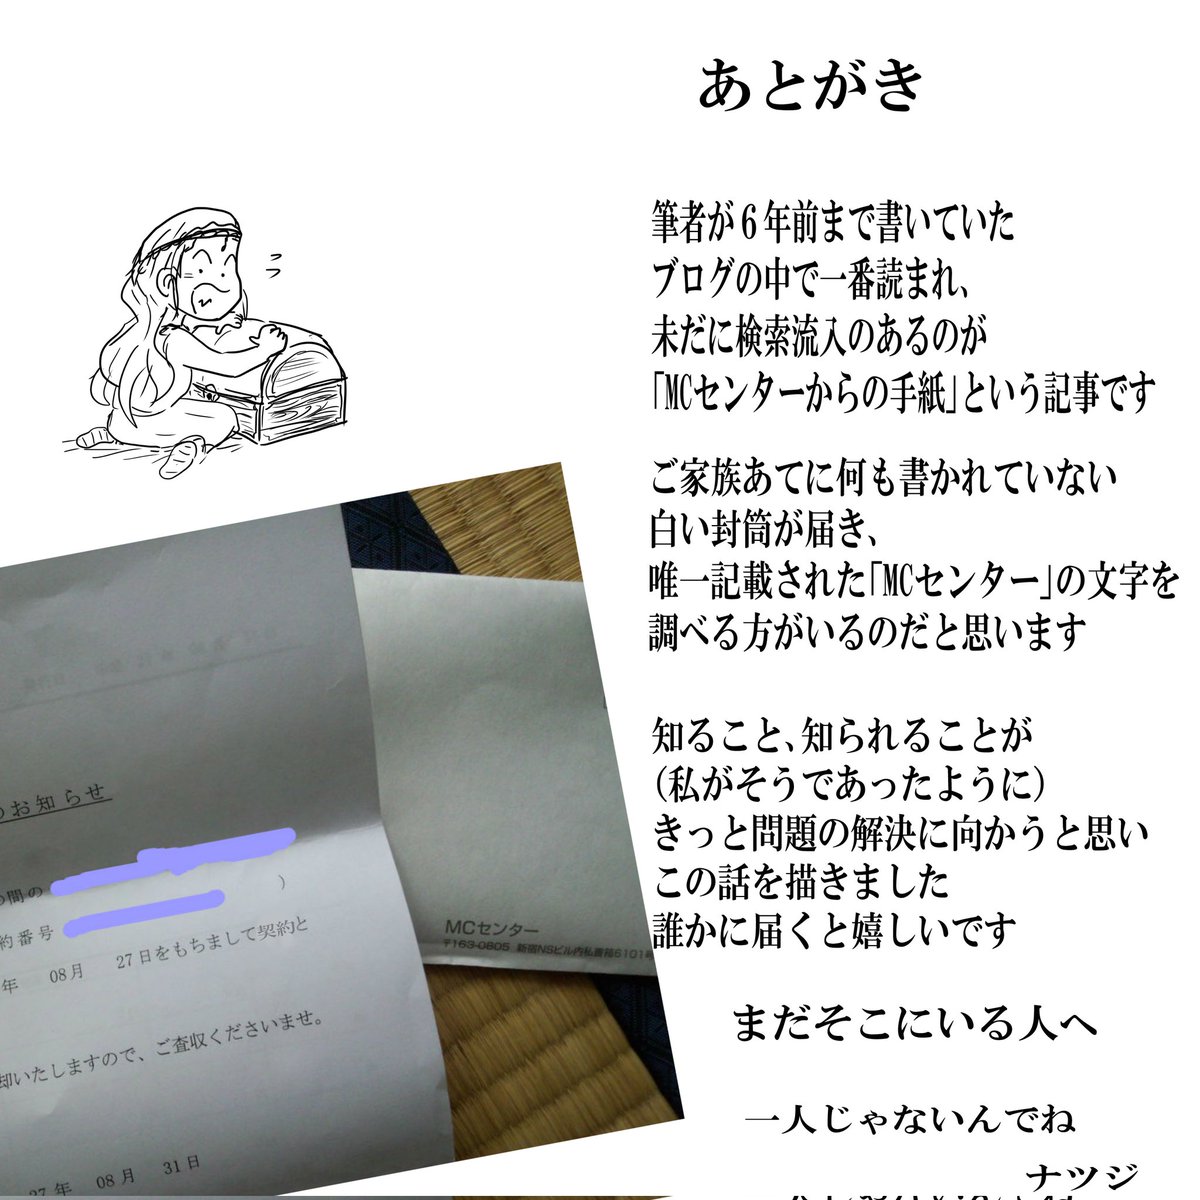 あとがき
筆者が6年前まで書いていた
ブログの中で一番読まれ、
未だに検索流入のあるのが
「MCセンターからの手紙」という記事です
ご家族あてに何も書かれていない
白い封筒が届き、
唯一記載された「MCセンター」の文字を
調べる方がいるのだと思います
知ること、知られることが
(私がそうであったように)
きっと問題の解決に向かうと思い
この話を描きました
誰かに届くと嬉しいです
まだそこにいる人へ
一人じゃないんでね
ナツジ
のお知らせ
間の
)
約番号
年 08月 27日をもちまして契約と
却いたしますので、ご査収くださいませ。
27年 08月 31日
MCセンター
〒163-0805 新宿NSビル内私書箱6101号